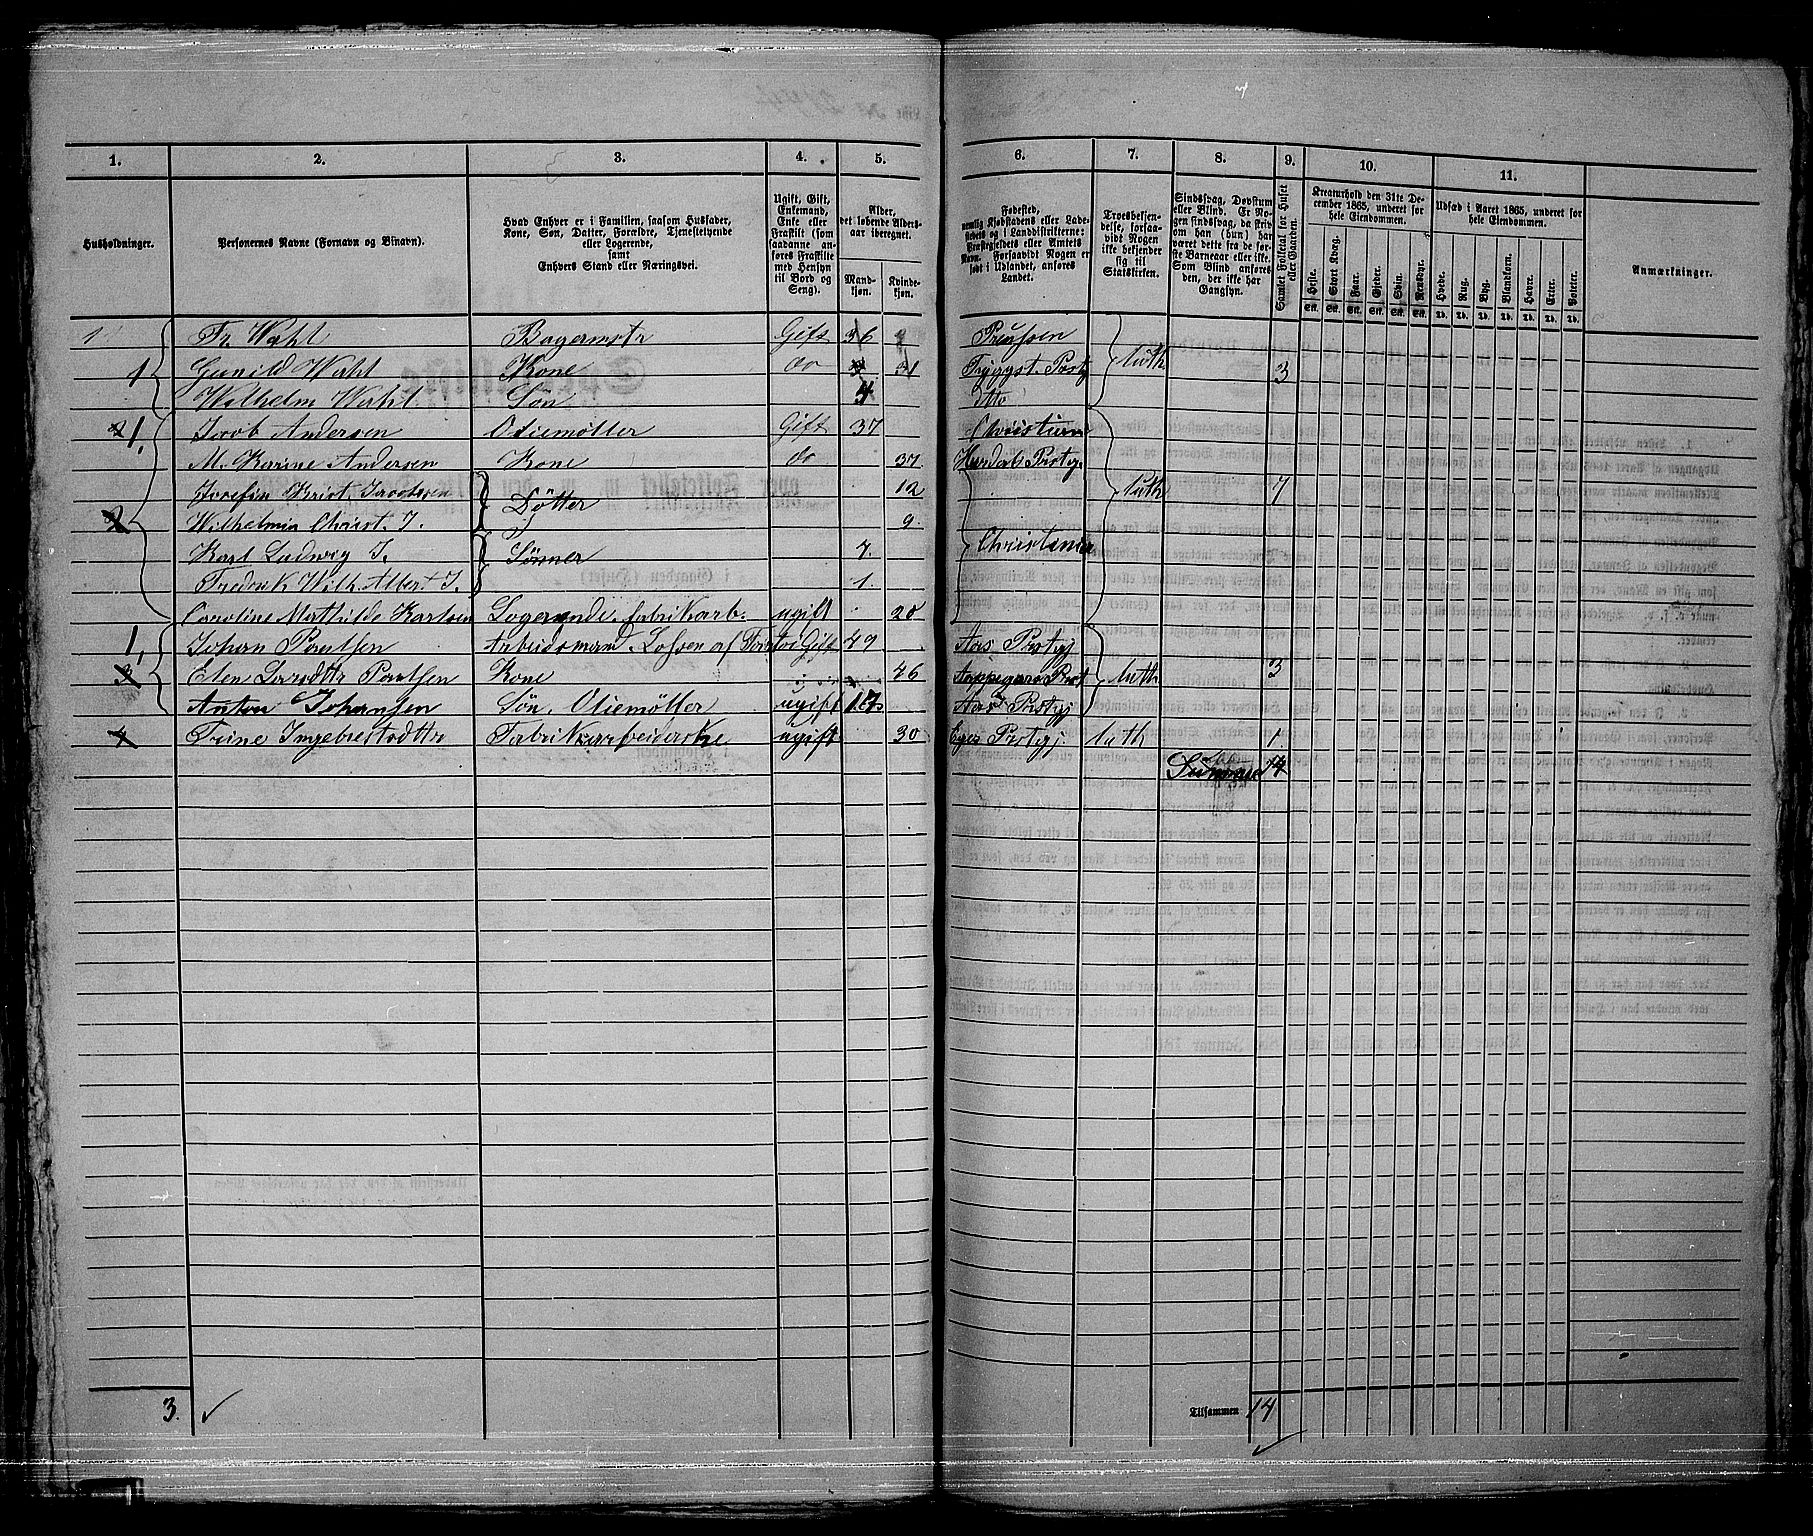 1. 2. 3. 4. 5. 6. 7. 8. 9. 10. 11.
Husholdninger.
Personernes Navne (Fornavn og Binavn).
Hvad Enhver er i Familien, saasom Husfader, Kone, Søn, Datter, Forældre, Tjenestetyende eller Logerende, samt Enhvers Stand eller Næringsvei.
Ugift, Gift, Enkemand, Enke eller Fraskilt (som saadanne anføres Fraskilte med Hensyn til Bord og Seng).
Alder, det løbende Aldersaar iberegnet.
Mandkjøn. Kvindekjøn.
Fødested, nemlig Kjøbstadens eller Ladestedets og i Landdistrikterne: Præstegjeldets eller Amtets Navn. Forsaavidt Nogen er født i Udlandet, anføres Landet.
Troesbekjendelse, forsaavidt Nogen ikke bekjender sig til Statskirken.
Sindssvag, Døvstum eller Blind. Er Nogen sindssvag, da skriv om han (hun) har været dette fra de første Barneaar eller ikke. Som Blind anføres den, der ikke har Gangsyn.
Samlet Folketal for Huset eller Gaarden.
Kreaturhold den 31te December 1865, underet for hele Eiendommen.
Heste. Stort Kvæg. Faar. Gjeder. Svin. Rensdyr.
Stk. Stk. Stk. Stk. Stk. Stk.
Udsæd i Aaret 1865, underet for hele Eiendommen.
Hvede. Rug. Byg. Blandkorn. Havre. Erter. Poteter.
Td. Td. Td. Td. Td. Td. Td.
Anmærkninger.
1 Fr. Wahl Bagermstr Gift 36 Preussen
1 Gunild Wahl Kone do 31 Tryggst. Prstgj Luth. 3
Wilhelm Wahl Søn 4 do
2 1. Jacob Andersen Oliemøller Gift 37 Christiania
M. Karine Andersen Kone do 37 Hurdals Prstgj.
Josefin Krist. Jacobsen Døtter 12 Luth 7
2 Wilhelmin Christ. J. 9.
Karl Ludwig J. Sønner 7. Christiania
Fredrik Wilh. Albert J. 1.
Caroline Mathilde Karlsen Logerende, fabrikarb. ugift 20
1, Johan Paulsen Arbeidsmand Gift 49 Aas Prstgj
3 Elen Larsdttr Paulsen Kone 46 Prst Luth 3
Anton Johansen Søn, Oliemøller ugift 17 Aas Prstgj
4 Trine Ingebretsdttr Fabrikarbeiderske ugift 30 Eger Prstgj Luth 1.
Summa 14
3. Tilsammen 14